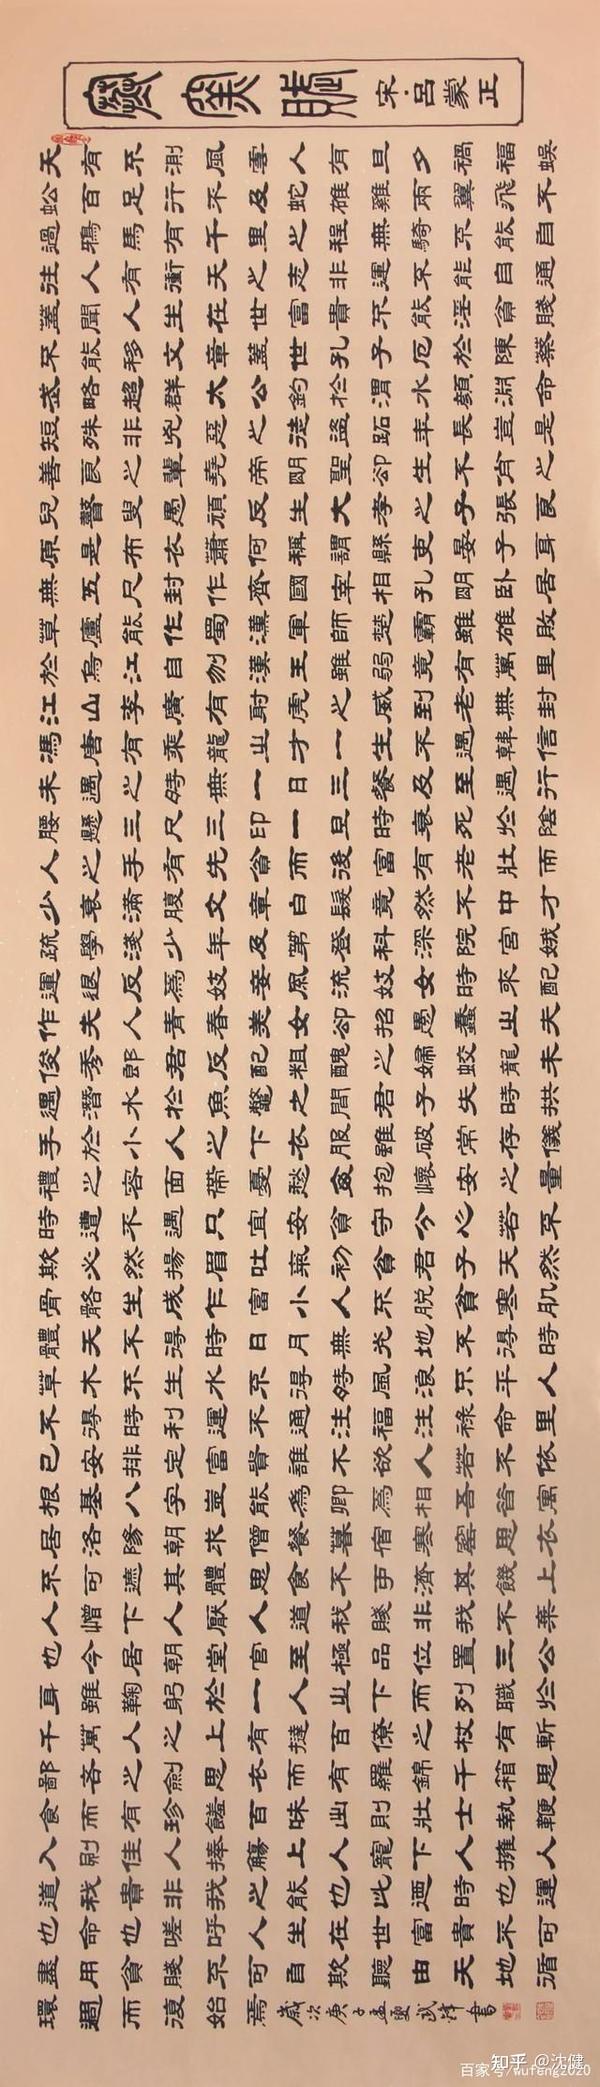 寒窑賦 宋·呂蒙正
天有不測風雲人有旦夕禍福蜈
蚣百足行不及蛇雄雞兩翼飛不
過鴉馬有千里之程無騎不能自
往人有衝天之志非運不能自通
蓋聞人生在世富貴不能淫貧賤
不能移文章蓋世孔子厄於陳蔡
武略超群太公釣於渭水顏淵命
短殊非兇惡之徒盜跖年長豈是
善良之輩堯帝明聖卻生不肖之
兒瞽叟愚頑反生大孝之子張良
原是布衣蕭何稱謂縣吏晏子身
無五尺封作齊國宰相孔明臥居
草廬能作蜀漢軍師楚霸雖雄敗
於烏江自刎漢王雖弱竟有萬里
江山李廣有射虎之威到老無封
馮唐有乘龍之才一生不遇韓信
未遇之時無一日三餐及至遇行
腰懸三尺三印一旦時衰死於陰
人之手有先貧而後富有老壯而
少衰滿腹文章白髮竟然不中才
疏學淺少年及第登科深院宮娥
運退反為妓妾風流妓女時來配
作夫人青春美女卻招愚蠢之夫
俊秀郎君反配粗醜之婦蛟龍未
遇潛水於魚鱉之間君子失時拱
手於小人之下衣服雖破常存儀
禮之容面帶憂愁每抱懷安之量
時遭不遇只宜安貧守兮心若不
欺必然揚眉吐氣初貧君子天然
骨骼生成乍富小人不脫貧寒肌
體天不得時日月無光地不得時
草木不生水不得時風浪不平人
不得時利運不通注福注定命里
已安排定富貴誰不欲人若不依
根基八字豈能為卿為相吾昔寓
居洛陽朝求僧餐暮宿寒窑思衣
不可遮其體思食不可濟其饑上
人憎下人厭人道我賤非我不棄
也今居朝堂官至極品位置三公
身雖鞠躬於一人之下而列職於
千萬人之上有撻百僚之杖有斬
鄙吝之劍思衣而有羅錦千箱思
食而有珍饈百味出則壯士執鞭
入則佳人捧觴上人寵下人擁人
道我貴非我之能也此迺時也運
也命也嗟呼人生在世富貴不可
盡用貧賤不可自欺聽由天地循
環週而復始焉
歲次庚子孟夏武鋒書
知乎 @沈健
百家号/wufeng2020